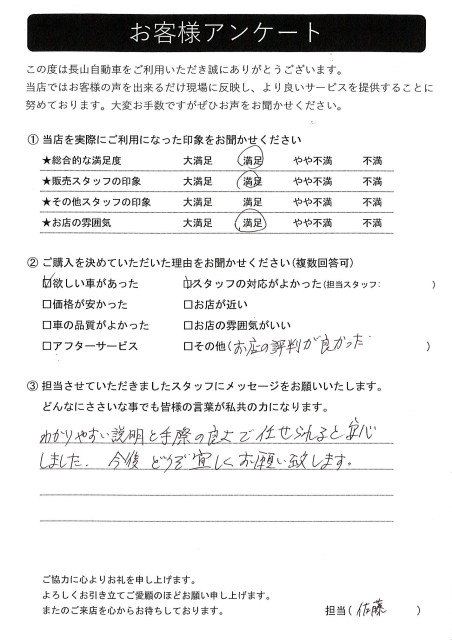 お客様アンケート
この度は長山自動車をご利用いただき誠にありがとうございます。
当店ではお客様の声を出来るだけ現場に反映し、より良いサービスを提供することに
努めております。大変お手数ですがぜひお声をお聞かせください。
① 当店を実際にご利用になった印象をお聞かせください
★総合的な満足度 大満足 満足 やや不満 不満
★販売スタッフの印象 大満足 満足 やや不満 不満
★その他スタッフの印象 大満足 満足 やや不満 不満
★お店の雰囲気 大満足 満足 やや不満 不満
② ご購入を決めていただいた理由をお聞かせください(複数回答可)
☑欲しい車があった ☑スタッフの対応がよかった(担当スタッフ: )
□価格が安かった □お店が近い
□車の品質がよかった □お店の雰囲気がいい
□アフターサービス □その他(お店の評判が良かった )
③ 担当させていただきましたスタッフにメッセージをお願いいたします。
どんなにささいな事でも皆様の言葉が私共の力になります。
わかりやすい説明と手際の良さで任せられると安心
しました. 今後どうぞ宜しくお願い致します。
ご協力に心よりお礼を申し上げます。
よろしくお引き立てご愛顧のほどお願い申し上げます。
またのご来店を心からお待ちしております。 担当( 佐藤 )